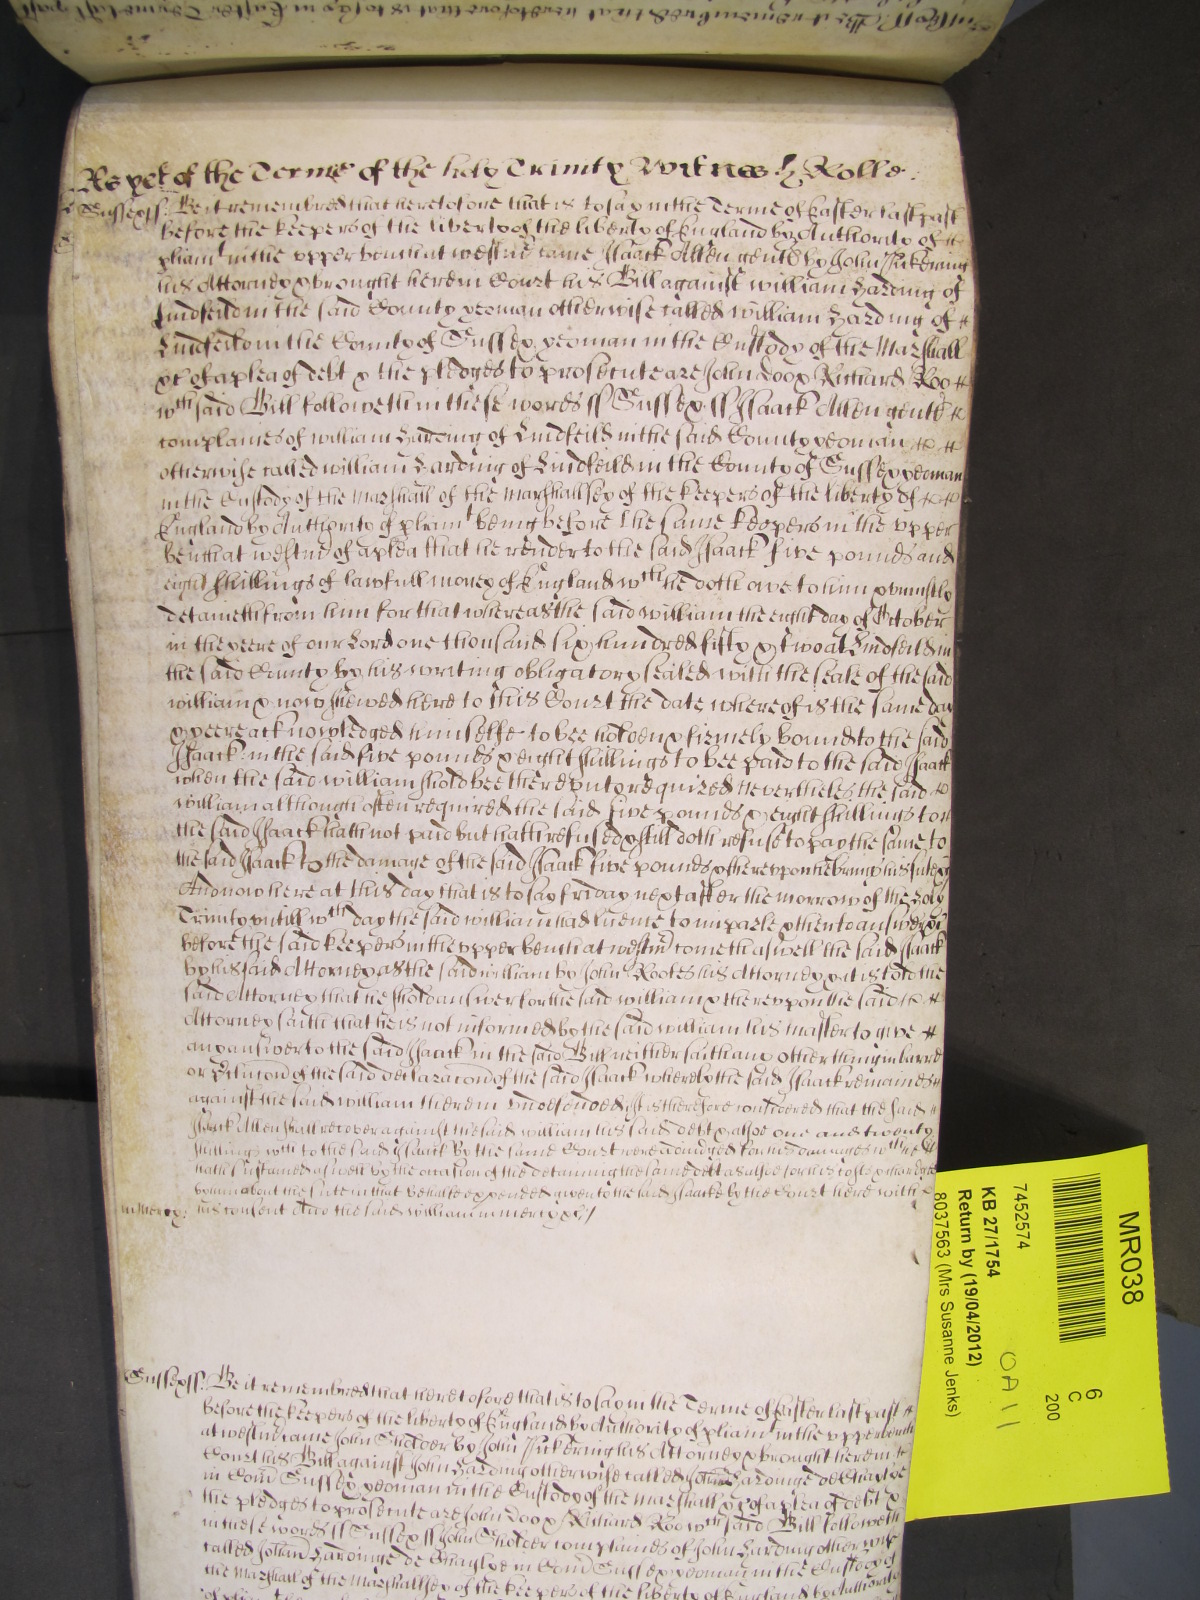 As yet of the Terme of the holy Trinity Witnes H Rolle
Sussex ss Be it remembred that heretofore that is to say in the Terme of Easter last past
before the keepers of the liberty of the liberty of England by Authority of
pliamt in the upper bench at westmr came Isaack Allen gentl by John Pickering
his Attorney & brought here in Court his Bill against william Harding of
Lindfeild in the said County yeoman otherwise called william Harding of
Lindfeild in the County of Sussex yeoman in the Custody of the Marshall
&c of a plea of debt & the pledges to prosecute are John Doo & Richard Roo
wch said Bill followeth in these words ss Sussex ss Isaack Allen gentl
complaines of william Harding of Lindfeild in the said County yeoman
otherwise called william Harding of Lindfeild in the County of Sussex yeoman
in the Custody of the Marshall of the Marshallsey of the keepers of the liberty of
England by Authority of pliamt being before the same keepers in the upper
bench at westmr of a plea that he render to the said Isaack five pounds and
eight shillings of lawfull money of England wch he doth owe to him & uniustly
deteineth from him for that whereas the said william the eight day of October
in the yeere of our Lord one thousand six hundred fifty & two at Lindfeild in
the said County by his writing obligatory sealed with the seale of the said
william & now shewed here to this Court the date whereof is the same day
& yeere acknowledged himselfe to bee holden & firmely bound to the said
Isaack in the said five pounds & eight shillings to bee paid to the said Isaack
when the said william shold bee thereunto required Neverthelès the said
william although often required the said five pounds & eight shillings to
the said Isaack hath not paid but hath refused & still doth refuse to pay the same to
the said Isaack to the damage of the said Isaack five pounds & thereupon he brings his suite &c
And now here at this day that is to say friday next after the morrow of the holy
Trinity untill wch day the said william had licence to imparle & then to answer &c
before the said keepers in the upper bench at westmr cometh aswell the said Isaack
by his said Attorney as the said william by John Rootes his Attorney & it is told the
said Attorney that he shold answer for the said william & thereupon the said
Attorney saith that he is not informed by the said william his master to give
any answer to the said Isaack in the said Bill neither saith any other thing in barre
or of the said declaracon of the said Isaack whereby the said Isaack remaines
against the said william therein undefended It is therefore considered that the said
Isaack Allen shall recover against the said william his said debt & alsoe one and twenty
shillings wch to the said Isaack by the same Court were adiudged for his damages wch he
hath susteined aswell by the occasion of the deteining the same debt as alsoe for his costes & charges
by him about the suite in that behalfe expended given to the said Isaacke by the Court here with
in Mercy: his consent And the said william in mercy &c
Sussex ss: Be it remembred that heretofore that is to say in the Terme of Easter last past
before the keepers of the liberty of England by Authority of pliamt in the upper bench
at westmr came John by John Pickering his Attorney & brought here in
Court his Bill against John Harding otherwise called Harding de
in Com Sussex yeoman in the Custody of the Marshall &c of a plea of debt &
the pledges to prosecute are John Doo & Richard Roo wch said Bill followeth
in these words ss Sussex ss John complaines of John Harding otherwise
called Hardinge de in Com Sussex yeoman in the Custody of
the Marshall of the Marshallsey of the keepers of the liberty of England by Authority
MR038
6
C
200
7452574
KB 27/1754
Return by (19/04/2012)
8037563 (Mrs Susanne Jenks)